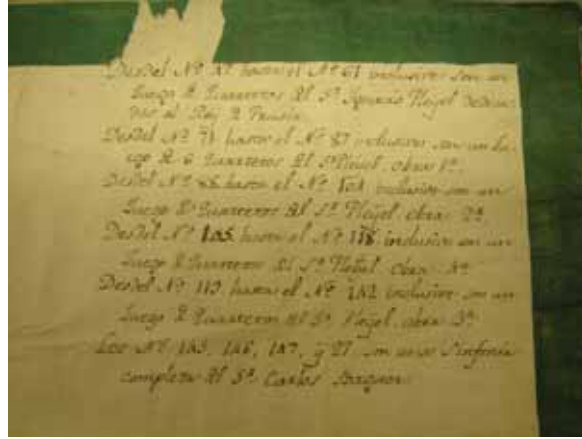 Desdel Nº 37 hasta el Nº 61 inclusive son un
Juego de Quartetos del Sr. Ignacio Pleyel dedica
dos al Rey de Prusia
Desdel Nº 71 hasta el Nº 87 inclusive son un Ju
ego de 6 Quartetos del Sr. Pleyel, obra 1ª
Desdel Nº 88 hasta el Nº 104 inclusive son un
Juego de Quartetos del Sr. Pleyel, obra 2ª
Desdel Nº 105 hasta el Nº 118 inclusive son un
Juego de Quartetos del Sr. Pleyel obra
Desdel Nº 119 hasta el Nº 132 inclusive son un
Juego de Quartetos del Sr. Pleyel, obra 3ª
Los Nº y 27 son unas Sinfonia
completa del Sr. Carlos